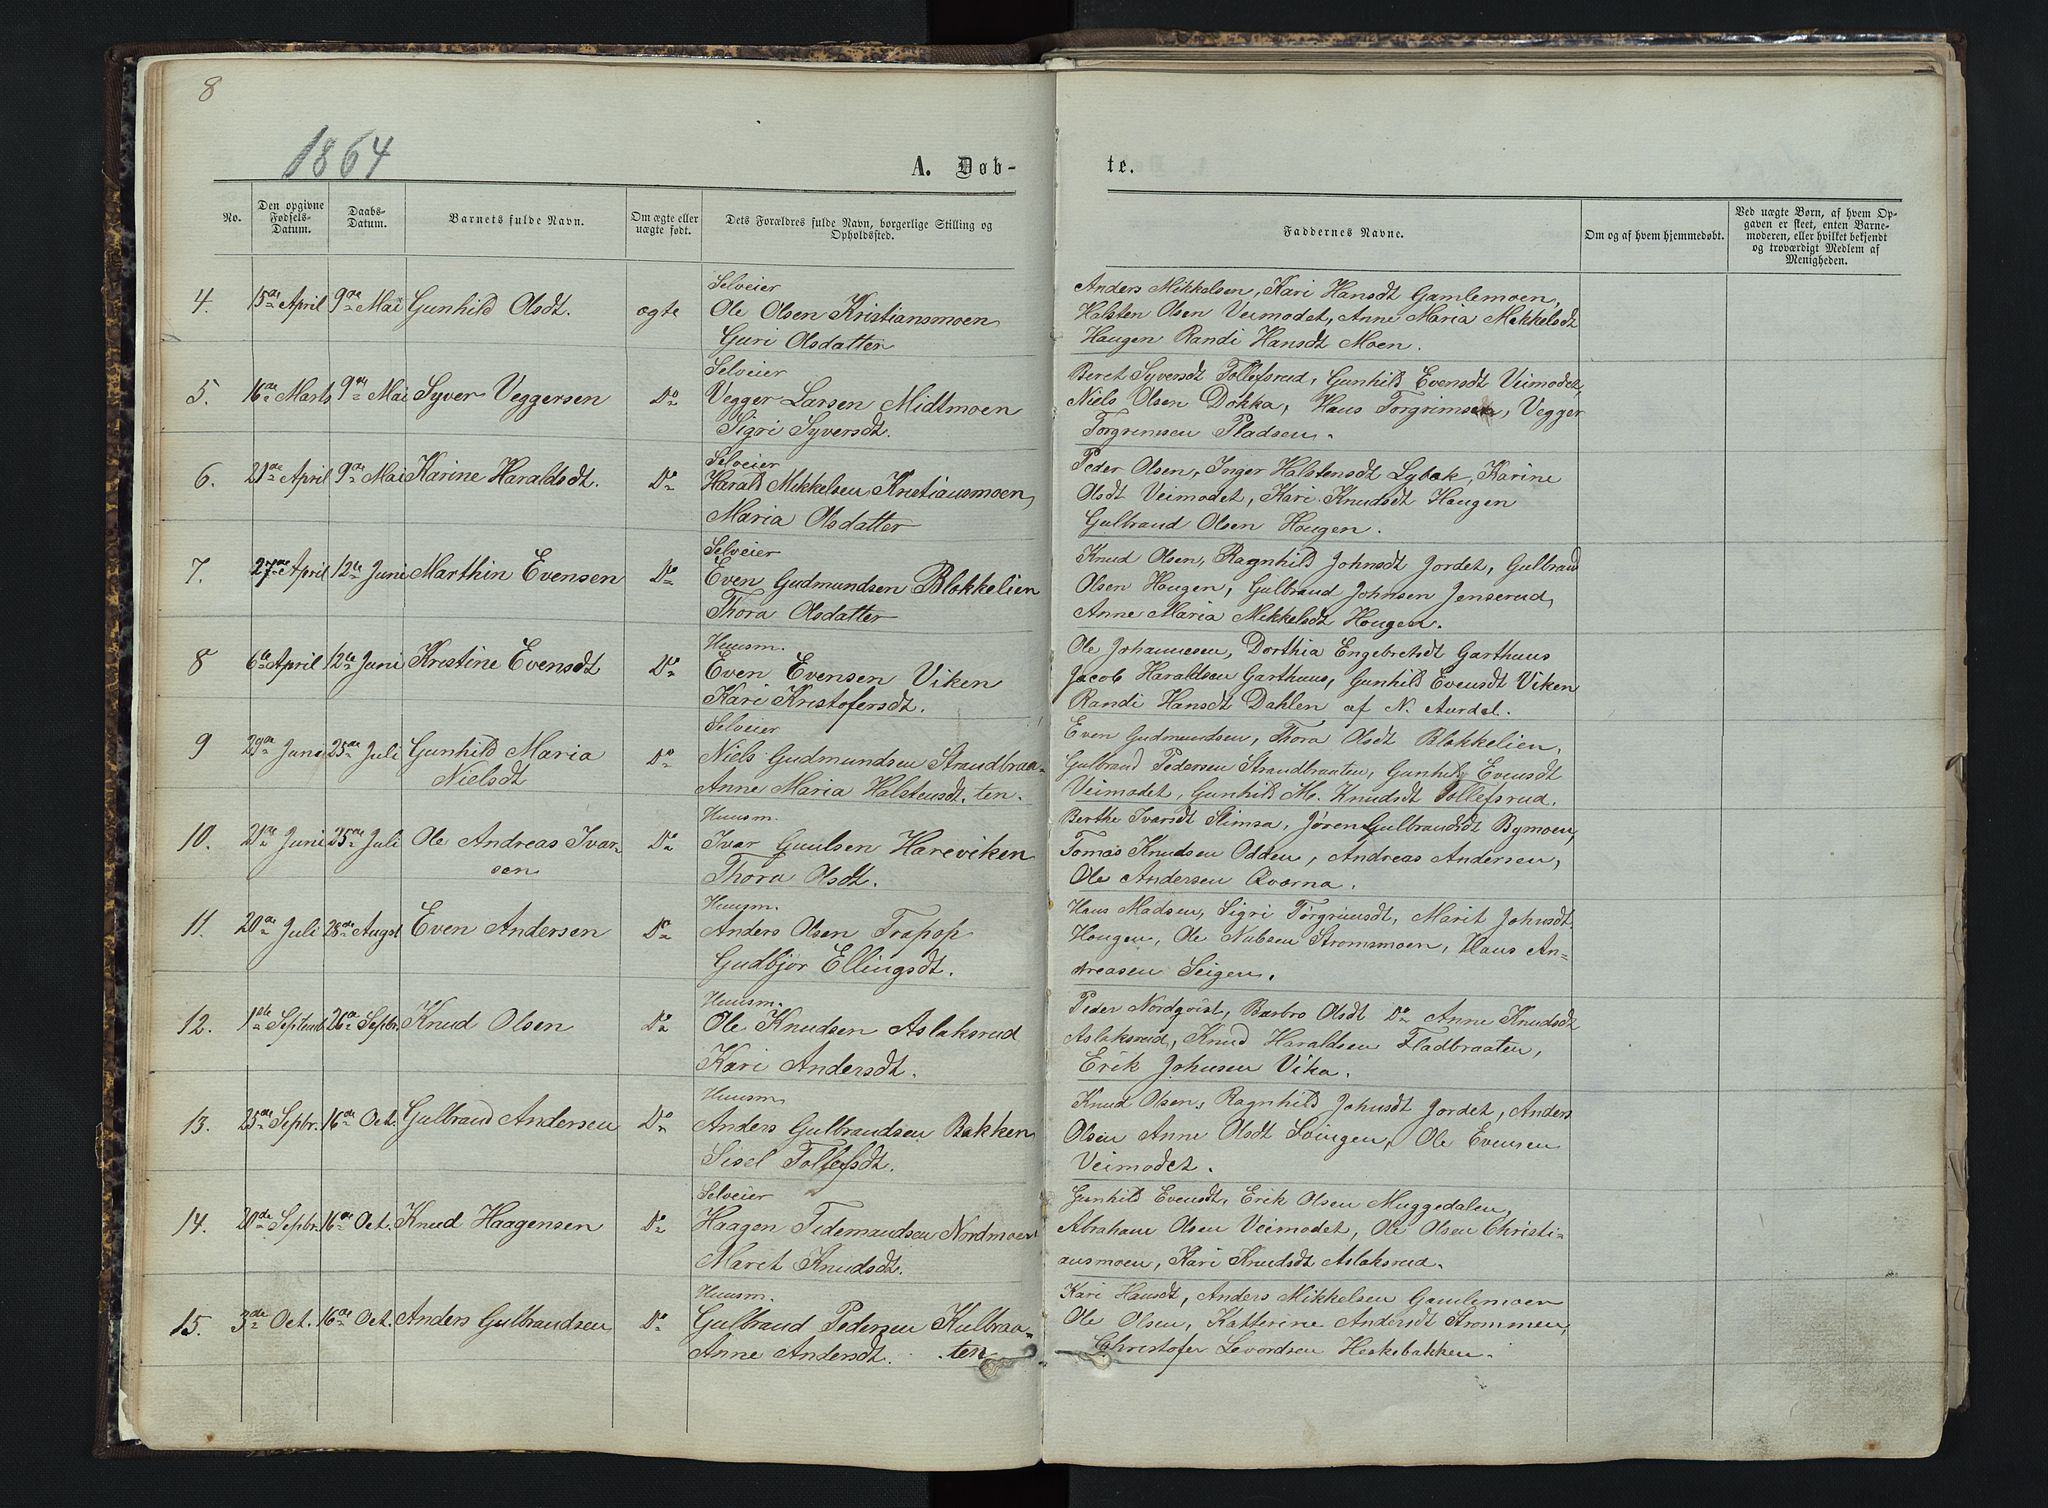 8
1864
A. Døb-
te.
No.
Den opgivne Fødsels-Datum.
Daabs-Datum.
Barnets fulde Navn.
Om ægte eller uægte født.
Dets Forældres fulde Navn, borgerlige Stilling og Opholdssted.
Faddernes Navne.
Om og af hvem hjemmedøbt.
Ved uægte Børn, af hvem Opgaven er skeet, enten Barnemoderen, eller hvilket bekjendt og troværdigt Medlem af Menigheden.
4. 15de April 9de Mai Gunhild Olsdt. ægte
Selveier
Ole Olsen Kristiansmoen
Guri Olsdatter
Anders Mikkelsen, Kari Hansdt Gamlemoen,
Halsten Olsen Veimodet, Anne Maria Mikkelsdt
Haugen Randi Hansdt Moen.
5. 16de Marts 9de Mai Syver Veggersen Do
Selveier
Vegger Larsen Midtmoen
Sigri Syversdt.
Beret Syversdt Tollefsrud, Gunhild Evensdt Veimodet,
Niels Olsen Dokka, Hans Torgrimsen, Vegger
Torgrimsen Pladsen.
6. 21de April 9de Mai Karine Haraldsdt. Do
Selveier
Harald Mikkelsen Kristiansmoen,
Maria Olsdatter
Peder Olsen, Inger Halstensdt Lybæk, Karine
Olsdt Veimodet, Kari Knudsdt Haugen
Gulbrand Olsen Hougen.
7. 27de April 12te Juni Marthin Evensen Do
Selveier
Even Gudmundsen Blokkelien
Thora Olsdatter
Knud Olsen, Ragnhild Johnsdt Jordet, Gulbrand
Olsen Hougen, Gulbrand Johnsen Jenserud,
Anne Maria Mikkelsdt Hougen.
8 6te April 12te Juni Kristine Evensdt Do
Huusm.
Even Evensen Viken
Kari Kristofersdt.
Ole Johannesen, Dorthia Engebretsdt Garthuus
Jacob Haraldsen Garthuus, Gunhild Evensdt Viken
Randi Hansdt Dahlen af N. Aurdal.
9 29de Juni 25de Juli Gunhild Maria
Nielsdt Do
Selveier
Niels Gudmundsen Strandbraa-
Anne Maria Halstensdt. ten.
Even Gudmundsen, Thora Olsdt Blokkelien,
Gulbrand Pedersen Strandbraaten, Gunhild Evensdt
Veimodet, Gunhild M. Knudsdt Tollefsrud.
10. 21de Juni 25de Juli Ole Andreas Ivar-
sen Do
Huusm.
Ivar Guulsen Hareviken
Thora Olsdt.
Berthe Ivarsdt Slimsa, Jøren Gulbrandsdt Bymoen,
Tomas Knudsen Odden, Andreas Andersen,
Ole Andersen Qværna.
11. 20de Juli 28de Augst Even Andersen Do
Huusm.
Anders Olsen Trapop
Gudbjør Ellingsdt.
Hans Madsen, Sigri Torgrimsdt, Marit Johnsdt
Hougen, Ole Nubsen Strømsmoen, Hans An-
dreasen Seigen.
12. 1ste Septemb. 26de Septbr. Knud Olsen Do
Huusm.
Ole Knudsen Aslaksrud
Kari Andersdt.
Peder Nordqvist, Barbro Olsdt Do Anne Knudsdt
Aslaksrud, Knud Haraldsen Fladbraaten,
Erik Johnsen Vika.
13. 25de Sepbr. 16de Oct. Gulbrand Andersen Do
Huusm.
Anders Gulbrandsen Bakken
Sisel Tollefsdt.
Knud Olsen, Ragnhild Johnsdt Jordet, Anders
Olsen Anne Olsdt Svingen, Ole Evensen
Veimodet.
14. 20de Sepbr. 16de Oct. Knud Haagensen Do
Selveier
Haagen Tidemandsen Nordmoen
Marit Knudsdt.
Gunhild Evensdt, Erik Olsen Muggedalen,
Abraham Olsen Veimodet, Ole Olsen Christi-
ansmoen, Kari Knudsdt Aslaksrud.
15. 3die Oct. 16de Oct. Anders Gulbrandsen Do
Huusm.
Gulbrand Pedersen Kulbraa-
Anne Andersdt. ten
Kari Hansdt, Anders Mikkelsen Gamlemoen
Ole Olsen, Katterine Andersdt Strommen,
Christofer Levordsen Heskebakken.